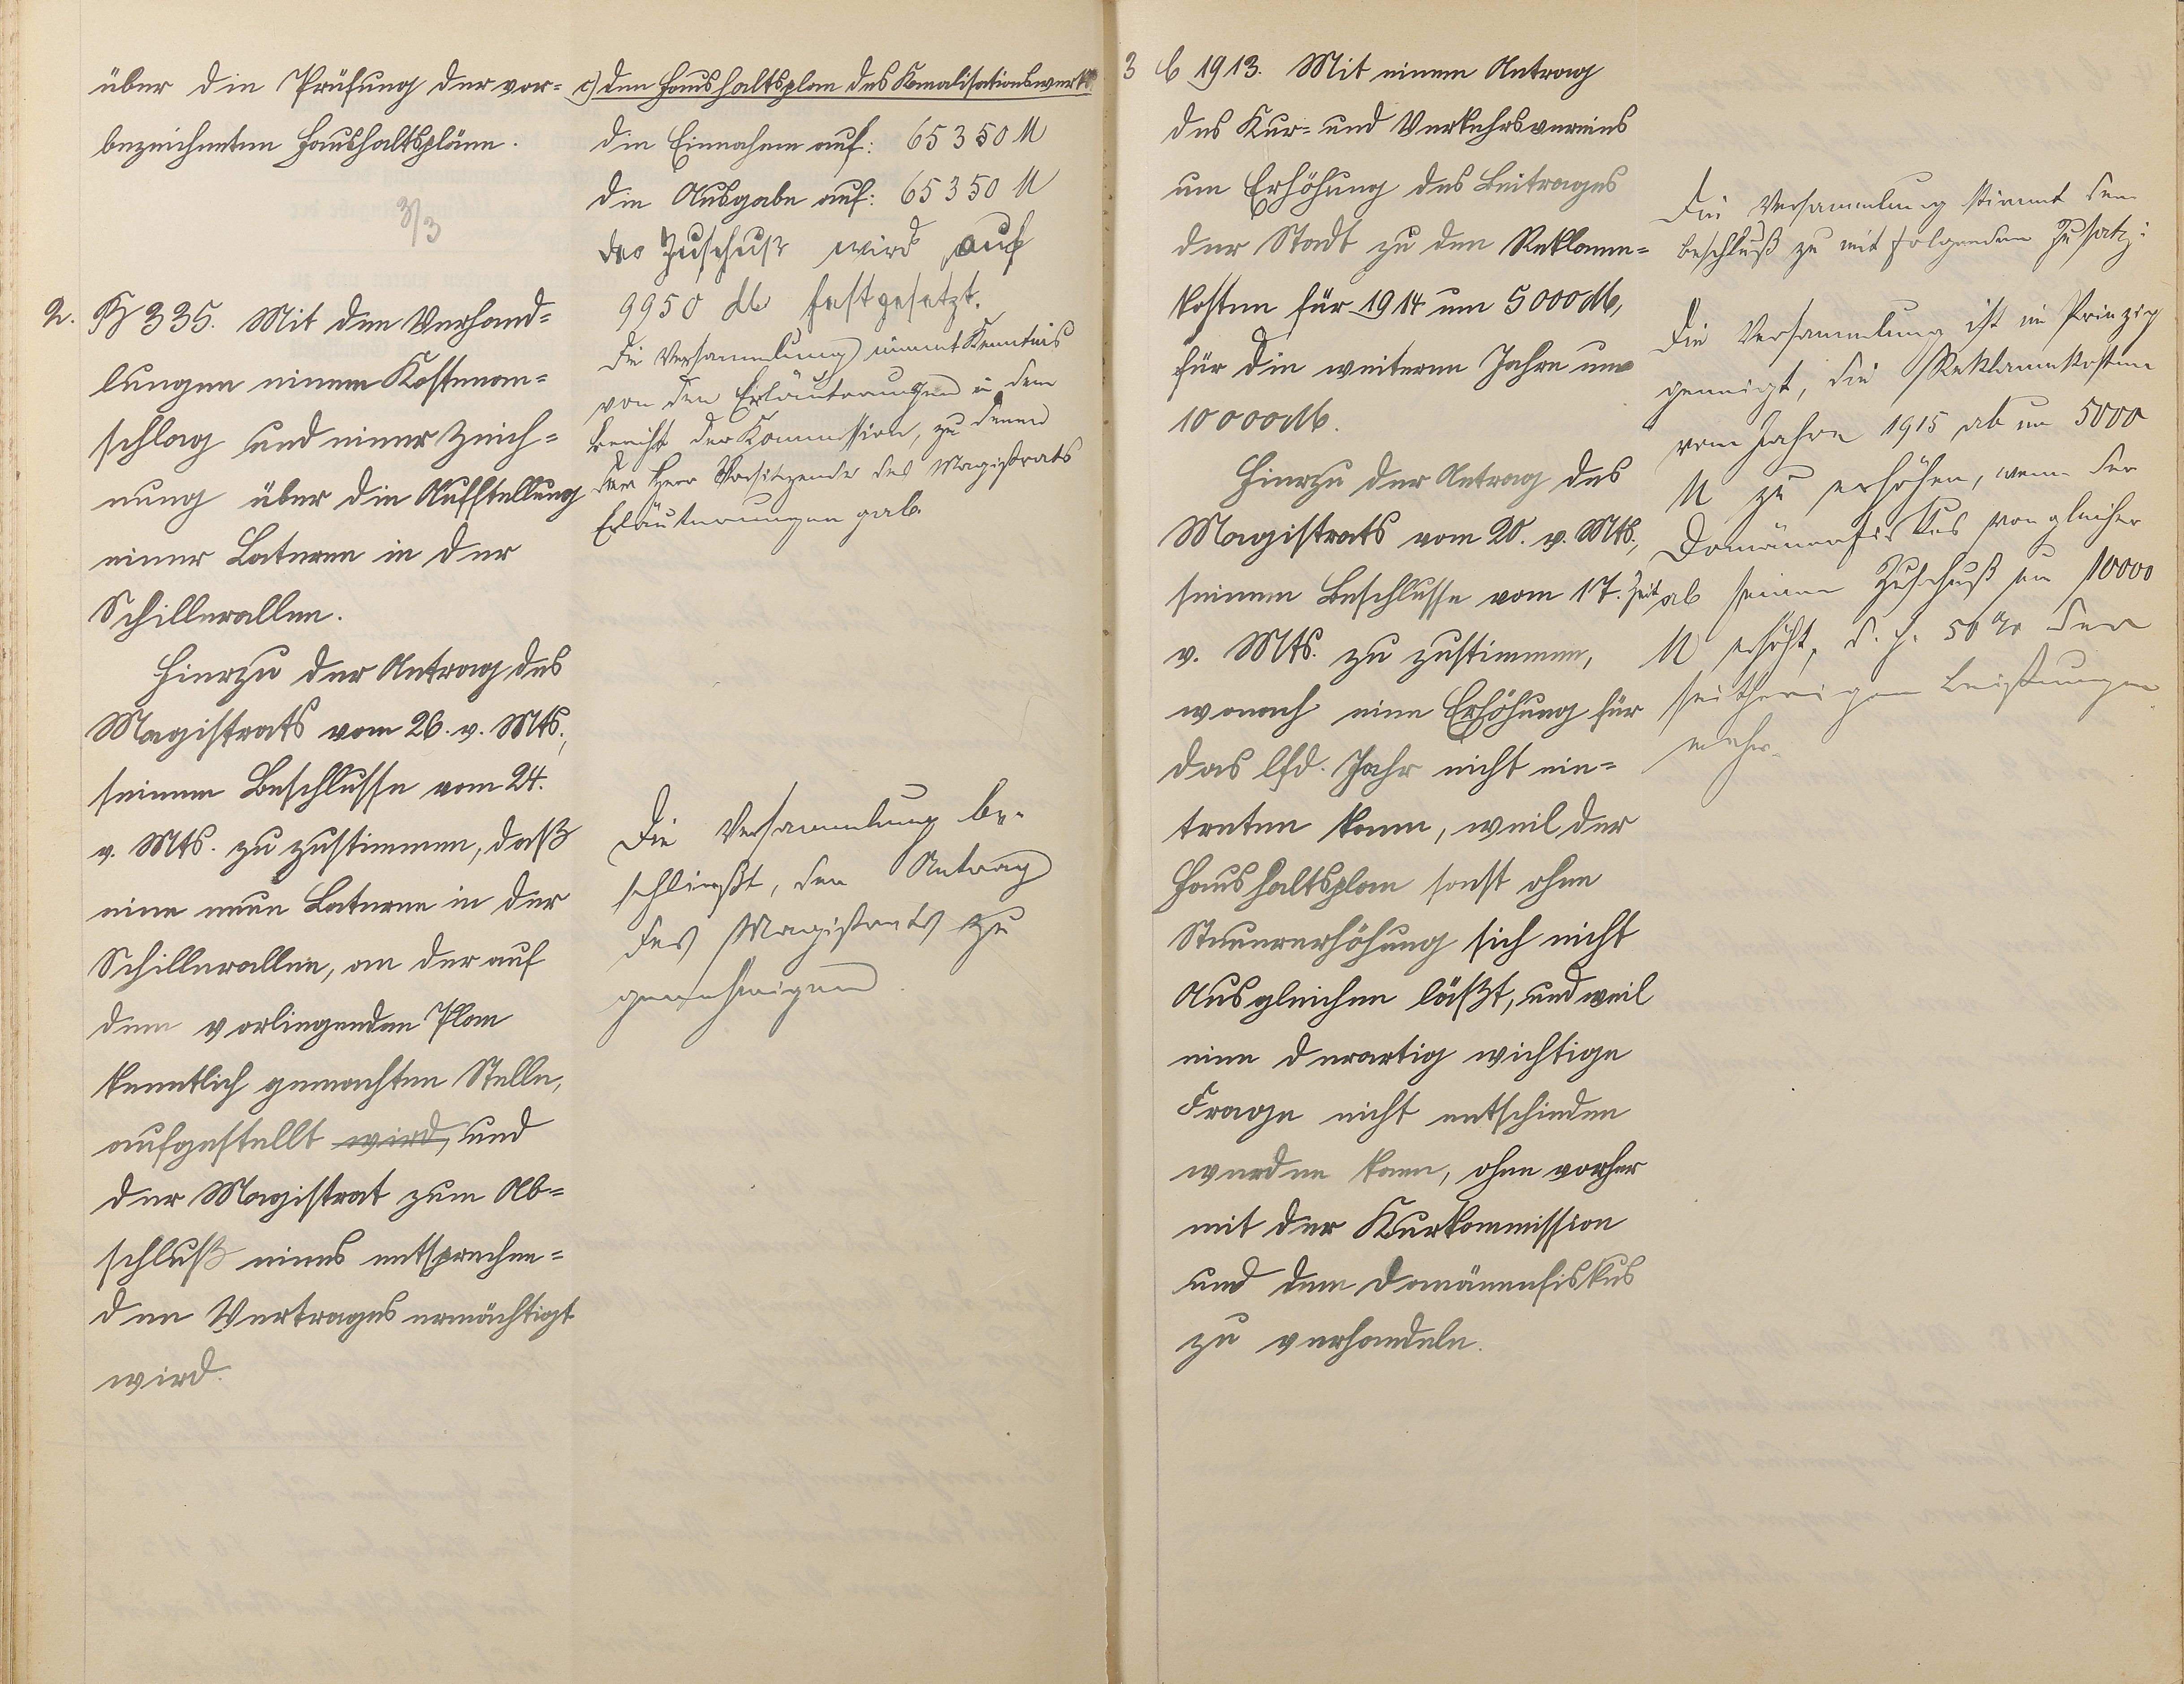 über die Prüfung der vor-
bezeichneten Haushaltspläne.
3/3
2. H 335. Mit den Verhand-
lungen einem Kostenan-
schlag und einer Zeich-
nung über die Aufstellung
einer Laterne in der
Schillerallee.
Hierzu der Antrag des
Magistrats vom 26. v. Mts.,
seinem Beschlusse vom 24.
v. Mts. zu zustimmen, daß
eine neue Laterne in der
Schillerallee, an der auf
dem vorliegenden Plan
kenntlich gemachten Stelle,
aufgestellt wird, und
der Magistrat zum Ab-
schluß eines entsprechen-
den Vertrages ermächtigt
wird.
c) den Haushaltsplan des Kanalisationswerks
die Einnahme auf: 65350 M
die Ausgabe auf: 65350 M
der Zuschuß wird auf
9950 M festgesetzt.
Die Versammlung nimmt Kenntnis
von den Erläuterungen in dem
Bericht der Kommission, zu denen
der Herr Vorsitzende des Magistrats
Erläuterungen gab.
Die Versammlung be-
schließt, den Antrag
des Magistrats zu
genehmigen.
3 C 1913. Mit einem Antrag
des Kur- und Verkehrsvereins
um Erhöhung des Beitrages
der Stadt zu den Reklame-
kosten für 1914 um 5000 M,
für die weiteren Jahre um
10000 M.
Hierzu der Antrag des
Magistrats vom 20. v. Mts.,
seinem Beschlusse vom 17.
v. Mts. zu zustimmen,
wonach eine Erhöhung für
das lfd. Jahr nicht ein-
treten kann, weil der
Haushaltsplan sonst ohne
Steuererhöhung sich nicht
Ausgleichen läßt, und weil
eine derartig wichtige
Frage nicht entschieden
werden kann, ohne vorher
mit der Kurkommission
und dem Domänenfiskus
zu verhandeln.
Die Versammlung stimmt dem
Beschluß zu mit folgendem Zusatz:
Die Versammlung ist im Prinzip
geneigt, die Reklamekosten
vom Jahre 1915 ab um 5000
M zu erhöhen, wenn der
Domänenfiskus von gleicher
Zeit ab seinen Zuschuß um 10000
M erhöht, d. h. 50% der
seitherigen Leistungen
mehr.